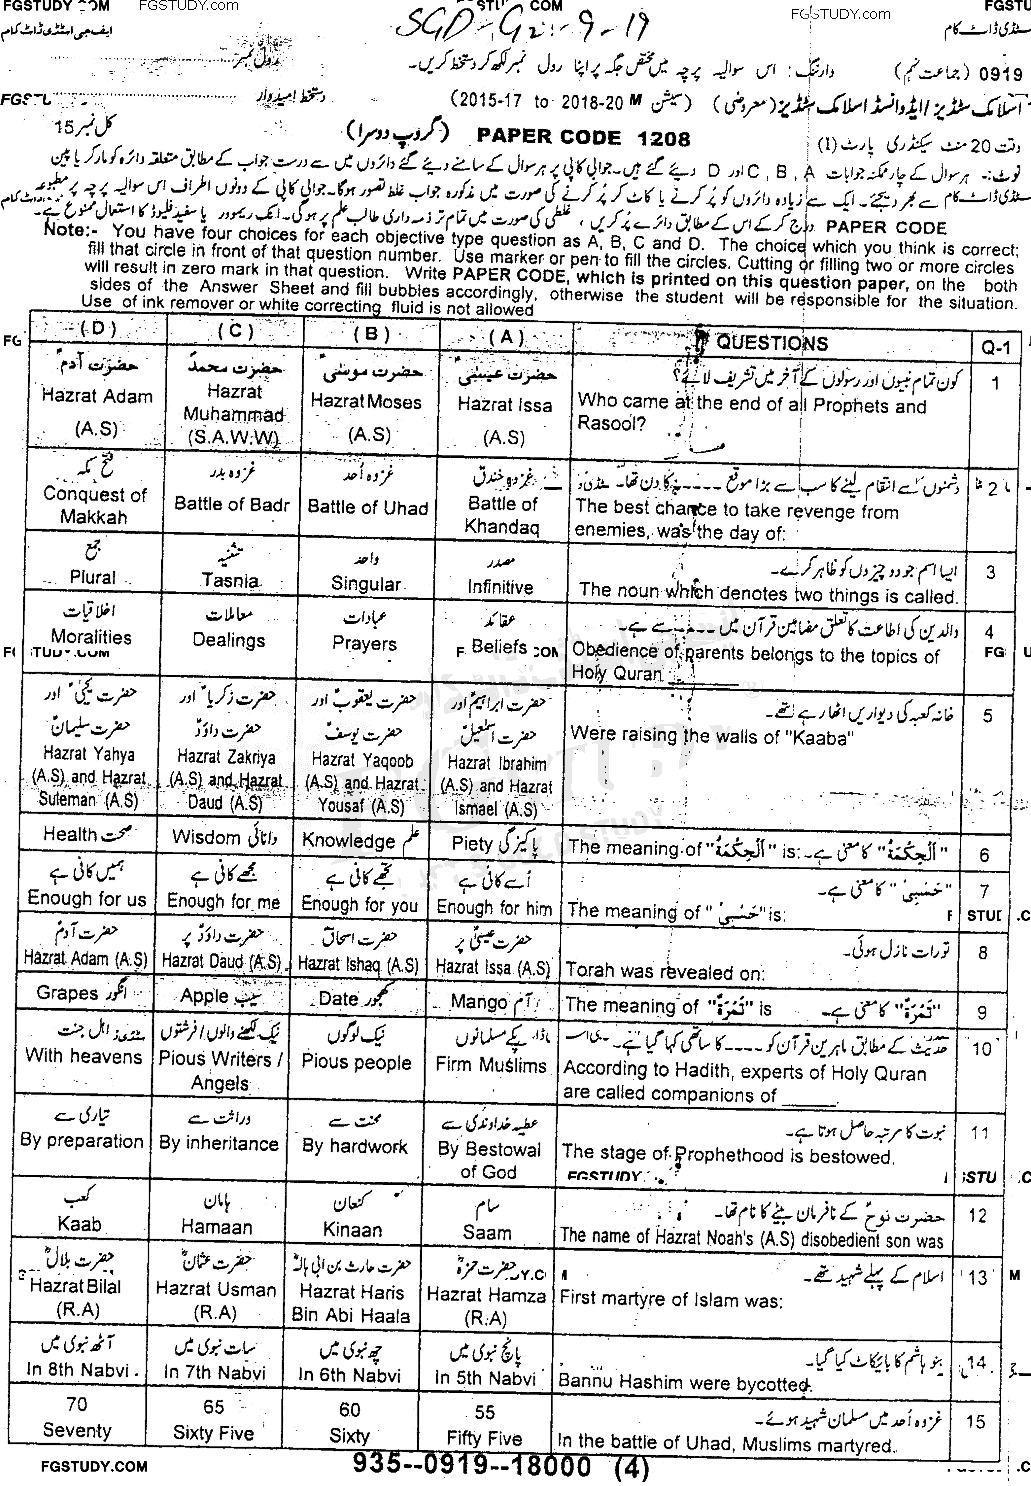 FGSTUDY.COM FGSTUDY.com STUDY.COM FGSTUDY.com FGSTU
SGD-G2-9-19
ایف جی اسٹڈی ڈاٹ کام سٹڈی ڈاٹ کام
0919 (جماعت نہم) وارننگ:۔ اس سوالیہ پرچہ میں مختص جگہ پر اپنا رول نمبر لکھ کر دستخط کریں۔ رول نمبر
اسلامک سٹڈیز/ایڈوانسڈ اسلامک سٹڈیز (معروضی) (سیشن 2015-17 to 2018-20) دستخط امیدوار
وقت 20 منٹ سیکنڈری پارٹ (I) PAPER CODE 1208 (گروپ دوسرا) کل نمبر 15
نوٹ:۔ ہر سوال کے چار ممکنہ جوابات A ، B ، C اور D دیئے گئے ہیں۔ جوابی کاپی پر ہر سوال کے سامنے دیئے گئے دائروں میں سے درست جواب کے مطابق متعلقہ دائرہ کو مارکر یا پین
سے بھر دیجئے۔ ایک سے زیادہ دائروں کو پُر کرنے یا کاٹ کر پُر کرنے کی صورت میں مذکورہ جواب غلط تصور ہوگا۔ جوابی کاپی کے دونوں اطراف اس سوالیہ پرچہ پر مطبوعہ
PAPER CODE درج کر کے اس کے مطابق دائرے پُر کریں، غلطی کی صورت میں تمام تر ذمہ داری طالب علم پر ہوگی۔ انک ریموور یا سفید فلیوڈ کا استعمال ممنوع ہے۔
Note:- You have four choices for each objective type question as A, B, C and D. The choice which you think is correct;
fill that circle in front of that question number. Use marker or pen to fill the circles. Cutting or filling two or more circles
will result in zero mark in that question. Write PAPER CODE, which is printed on this question paper, on the both
sides of the Answer Sheet and fill bubbles accordingly, otherwise the student will be responsible for the situation.
Use of ink remover or white correcting fluid is not allowed
(D) (C) (B) (A) QUESTIONS Q-1
حضرت آدمؑ حضرت محمدؐ حضرت موسیٰؑ حضرت عیسیٰؑ کون تمام نبیوں اور رسولوں کے آخر میں تشریف لائے؟ 1
Hazrat Adam (A.S) Hazrat Muhammad (S.A.W.W) Hazrat Moses (A.S) Hazrat Issa (A.S) Who came at the end of all Prophets and
Rasool?
فتح مکہ غزوہ بدر غزوہ اُحد غزوہ خندق دشمنوں سے انتقام لینے کا سب سے بڑا موقع ۔۔۔۔۔ کا دن تھا۔ 2
Conquest of Makkah Battle of Badr Battle of Uhad Battle of Khandaq The best chance to take revenge from
enemies, was the day of:
جمع تثنیہ واحد مصدر ایسا اسم جو دو چیزوں کو ظاہر کرے۔ 3
Plural Tasnia Singular Infinitive The noun which denotes two things is called.
اخلاقیات معاملات عبادات عقائد والدین کی اطاعت کا تعلق مضامین قرآن میں ۔۔۔۔ سے ہے 4
Moralities Dealings Prayers Beliefs Obedience of parents belongs to the topics of
Holy Quran ________
حضرت یحییٰؑ اور حضرت سلیمانؑ حضرت زکریاؑ اور حضرت داؤدؑ حضرت یعقوبؑ اور حضرت یوسفؑ حضرت ابراہیمؑ اور حضرت اسمٰعیلؑ خانہ کعبہ کی دیواریں اٹھا رہے تھے۔ 5
Hazrat Yahya (A.S) and Hazrat Suleman (A.S) Hazrat Zakriya (A.S) and Hazrat Daud (A.S) Hazrat Yaqoob (A.S) and Hazrat Yousaf (A.S) Hazrat Ibrahim (A.S) and Hazrat Ismael (A.S) Were raising the walls of "Kaaba"
Health صحت Wisdom دانائی Knowledge علم Piety پاکیزگی The meaning of "اَلْحِكْمَةُ" is:- "اَلْحِكْمَةُ" کا معنی ہے۔ 6
ہمیں کافی ہے مجھے کافی ہے تجھے کافی ہے اُسے کافی ہے "حَسْبِیْ" کا معنی ہے۔ 7
Enough for us Enough for me Enough for you Enough for him The meaning of "حَسْبِیْ" is:
حضرت آدمؑ حضرت داؤدؑ پر حضرت اسحاقؑ حضرت عیسیٰؑ پر تورات نازل ہوئی۔ 8
Hazrat Adam (A.S) Hazrat Daud (A.S) Hazrat Ishaq (A.S) Hazrat Issa (A.S) Torah was revealed on:
Grapes انگور Apple سیب Date کھجور Mango آم The meaning of "تَمْرَةٌ" is "تَمْرَةٌ" کا معنی ہے۔ 9
اہل جنت نیک لکھنے والوں/فرشتوں نیک لوگوں پکے مسلمانوں حدیث کے مطابق ماہرین قرآن کو ۔۔۔۔ کا ساتھی کہا گیا ہے۔ 10
With heavens Pious Writers / Angels Pious people Firm Muslims According to Hadith, experts of Holy Quran
are called companions of ______
تیاری سے وراثت سے محنت سے عطیہ خداوندی سے نبوت کا مرتبہ حاصل ہوتا ہے۔ 11
By preparation By inheritance By hardwork By Bestowal of God The stage of Prophethood is bestowed.
FGSTUDY
کعب ہامان کنعان سام حضرت نوحؑ کے نافرمان بیٹے کا نام تھا۔ 12
Kaab Hamaan Kinaan Saam The name of Hazrat Noah's (A.S) disobedient son was
حضرت بلالؓ حضرت عثمانؓ حضرت حارث بن ابی ہالہؓ حضرت حمزہؓ اسلام کے پہلے شہید تھے۔ 13
Hazrat Bilal (R.A) Hazrat Usman (R.A) Hazrat Haris Bin Abi Haala Hazrat Hamza (R.A) First martyre of Islam was:
آٹھ نبوی میں سات نبوی میں چھ نبوی میں پانچ نبوی میں بنو ہاشم کا بائیکاٹ کیا گیا۔ 14
In 8th Nabvi In 7th Nabvi In 6th Nabvi In 5th Nabvi Bannu Hashim were bycotted.
70 65 60 55 غزوہ اُحد میں مسلمان شہید ہوئے۔ 15
Seventy Sixty Five Sixty Fifty Five In the battle of Uhad, Muslims martyred.
FGSTUDY.COM 935--0919--18000 (4)